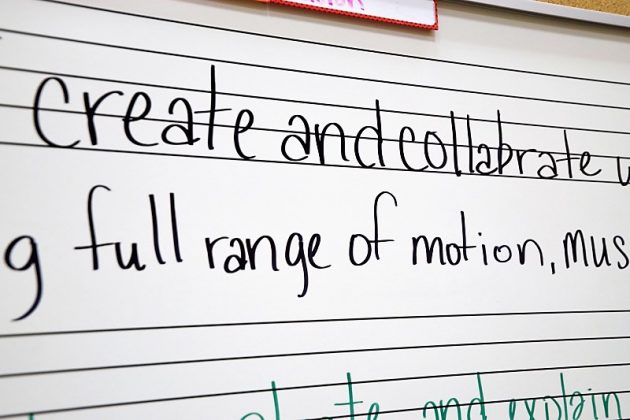 create and collabrate
g full range of motion, mus
and explain